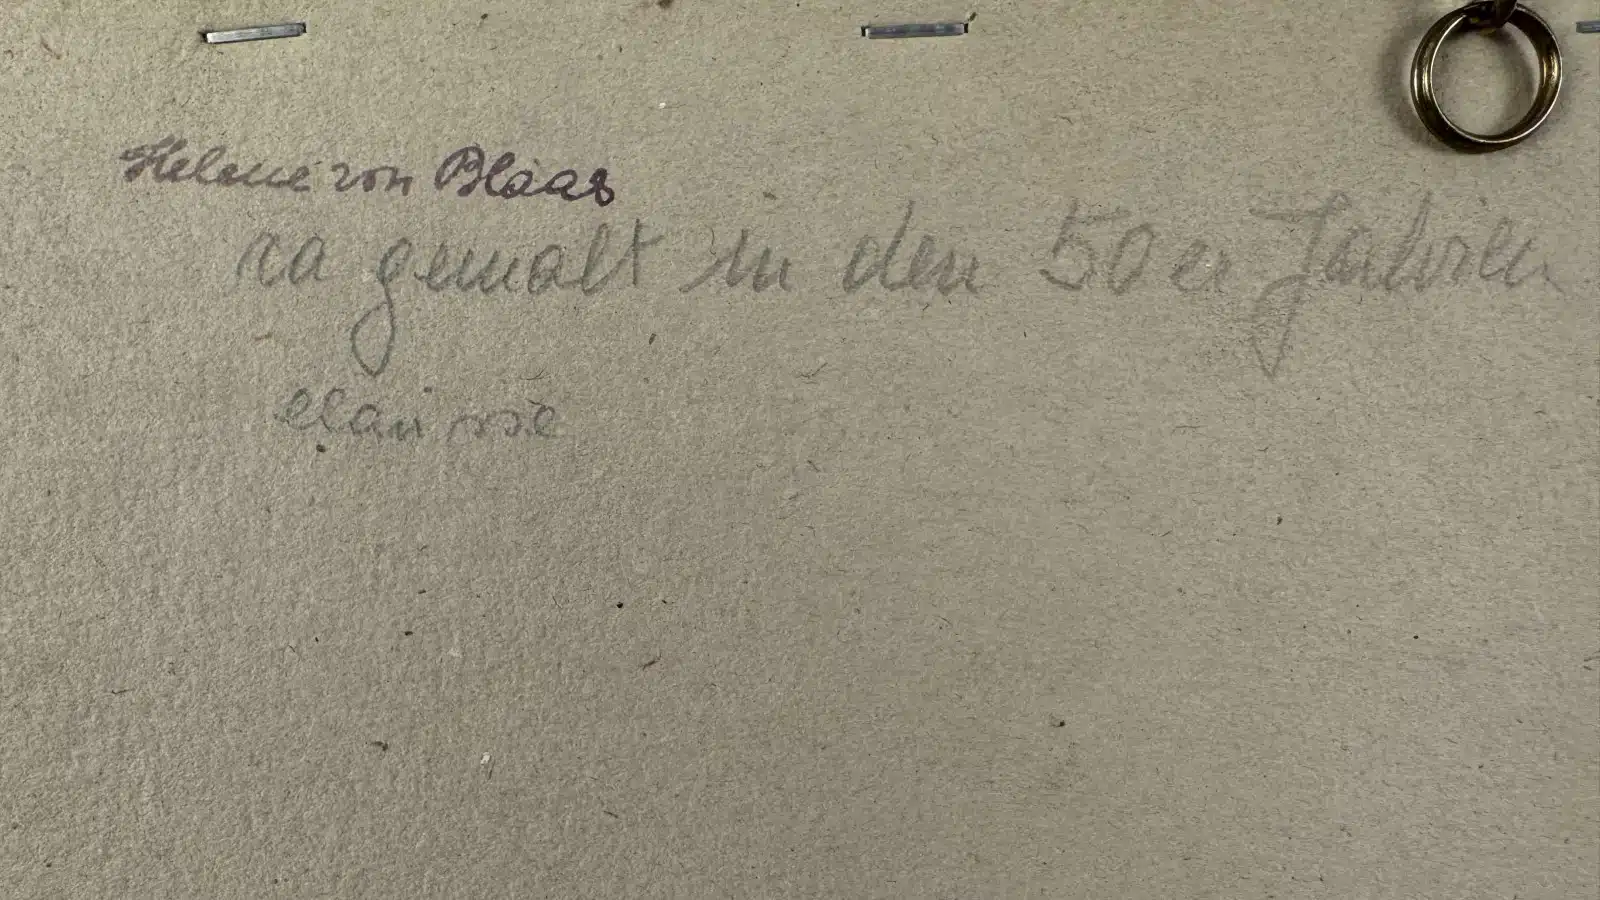 Helene von Blaas
ca gemalt in den 50er Jahren